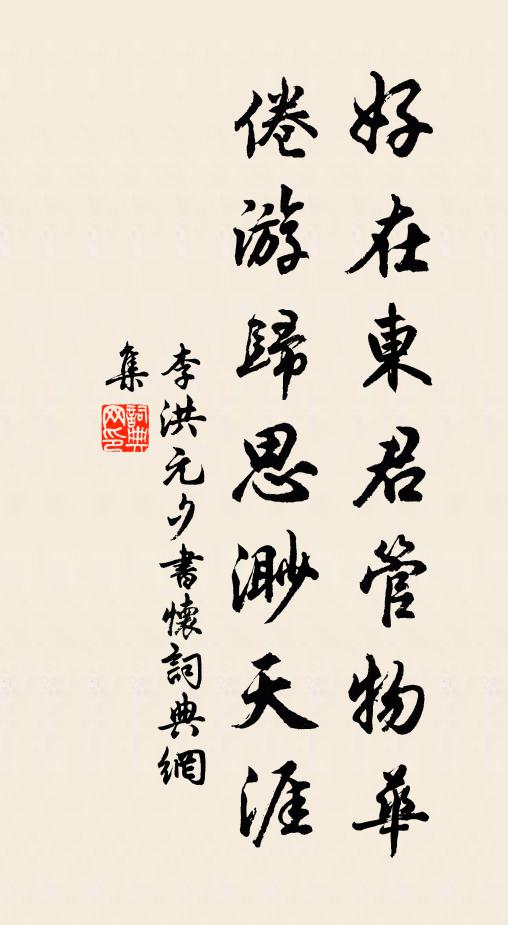 好在東君管物華
倦游歸思渺天涯
李洪元夕書懷詞典網
集
詞典
网印